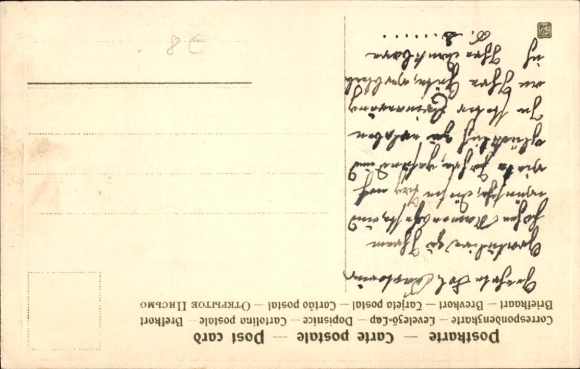 Postkarte — Carte postale — Post card
Correspondenzkarte — Levelező-Lap — Dopisnice — Cartolina postale — Brefkort
Briefkaart — Brevkort — Tarjeta postal — Cartão postal — Открытое Письмо
Gratuliere zu Ihrem
hohen Namensfeste, und
wünsche, diesen Tag noch
viele Jahre, gesund und
glücklich zu erleben
In steter Erinnerung
an Ihre Güte, verbleib
ich Ihre dankbare
8 €